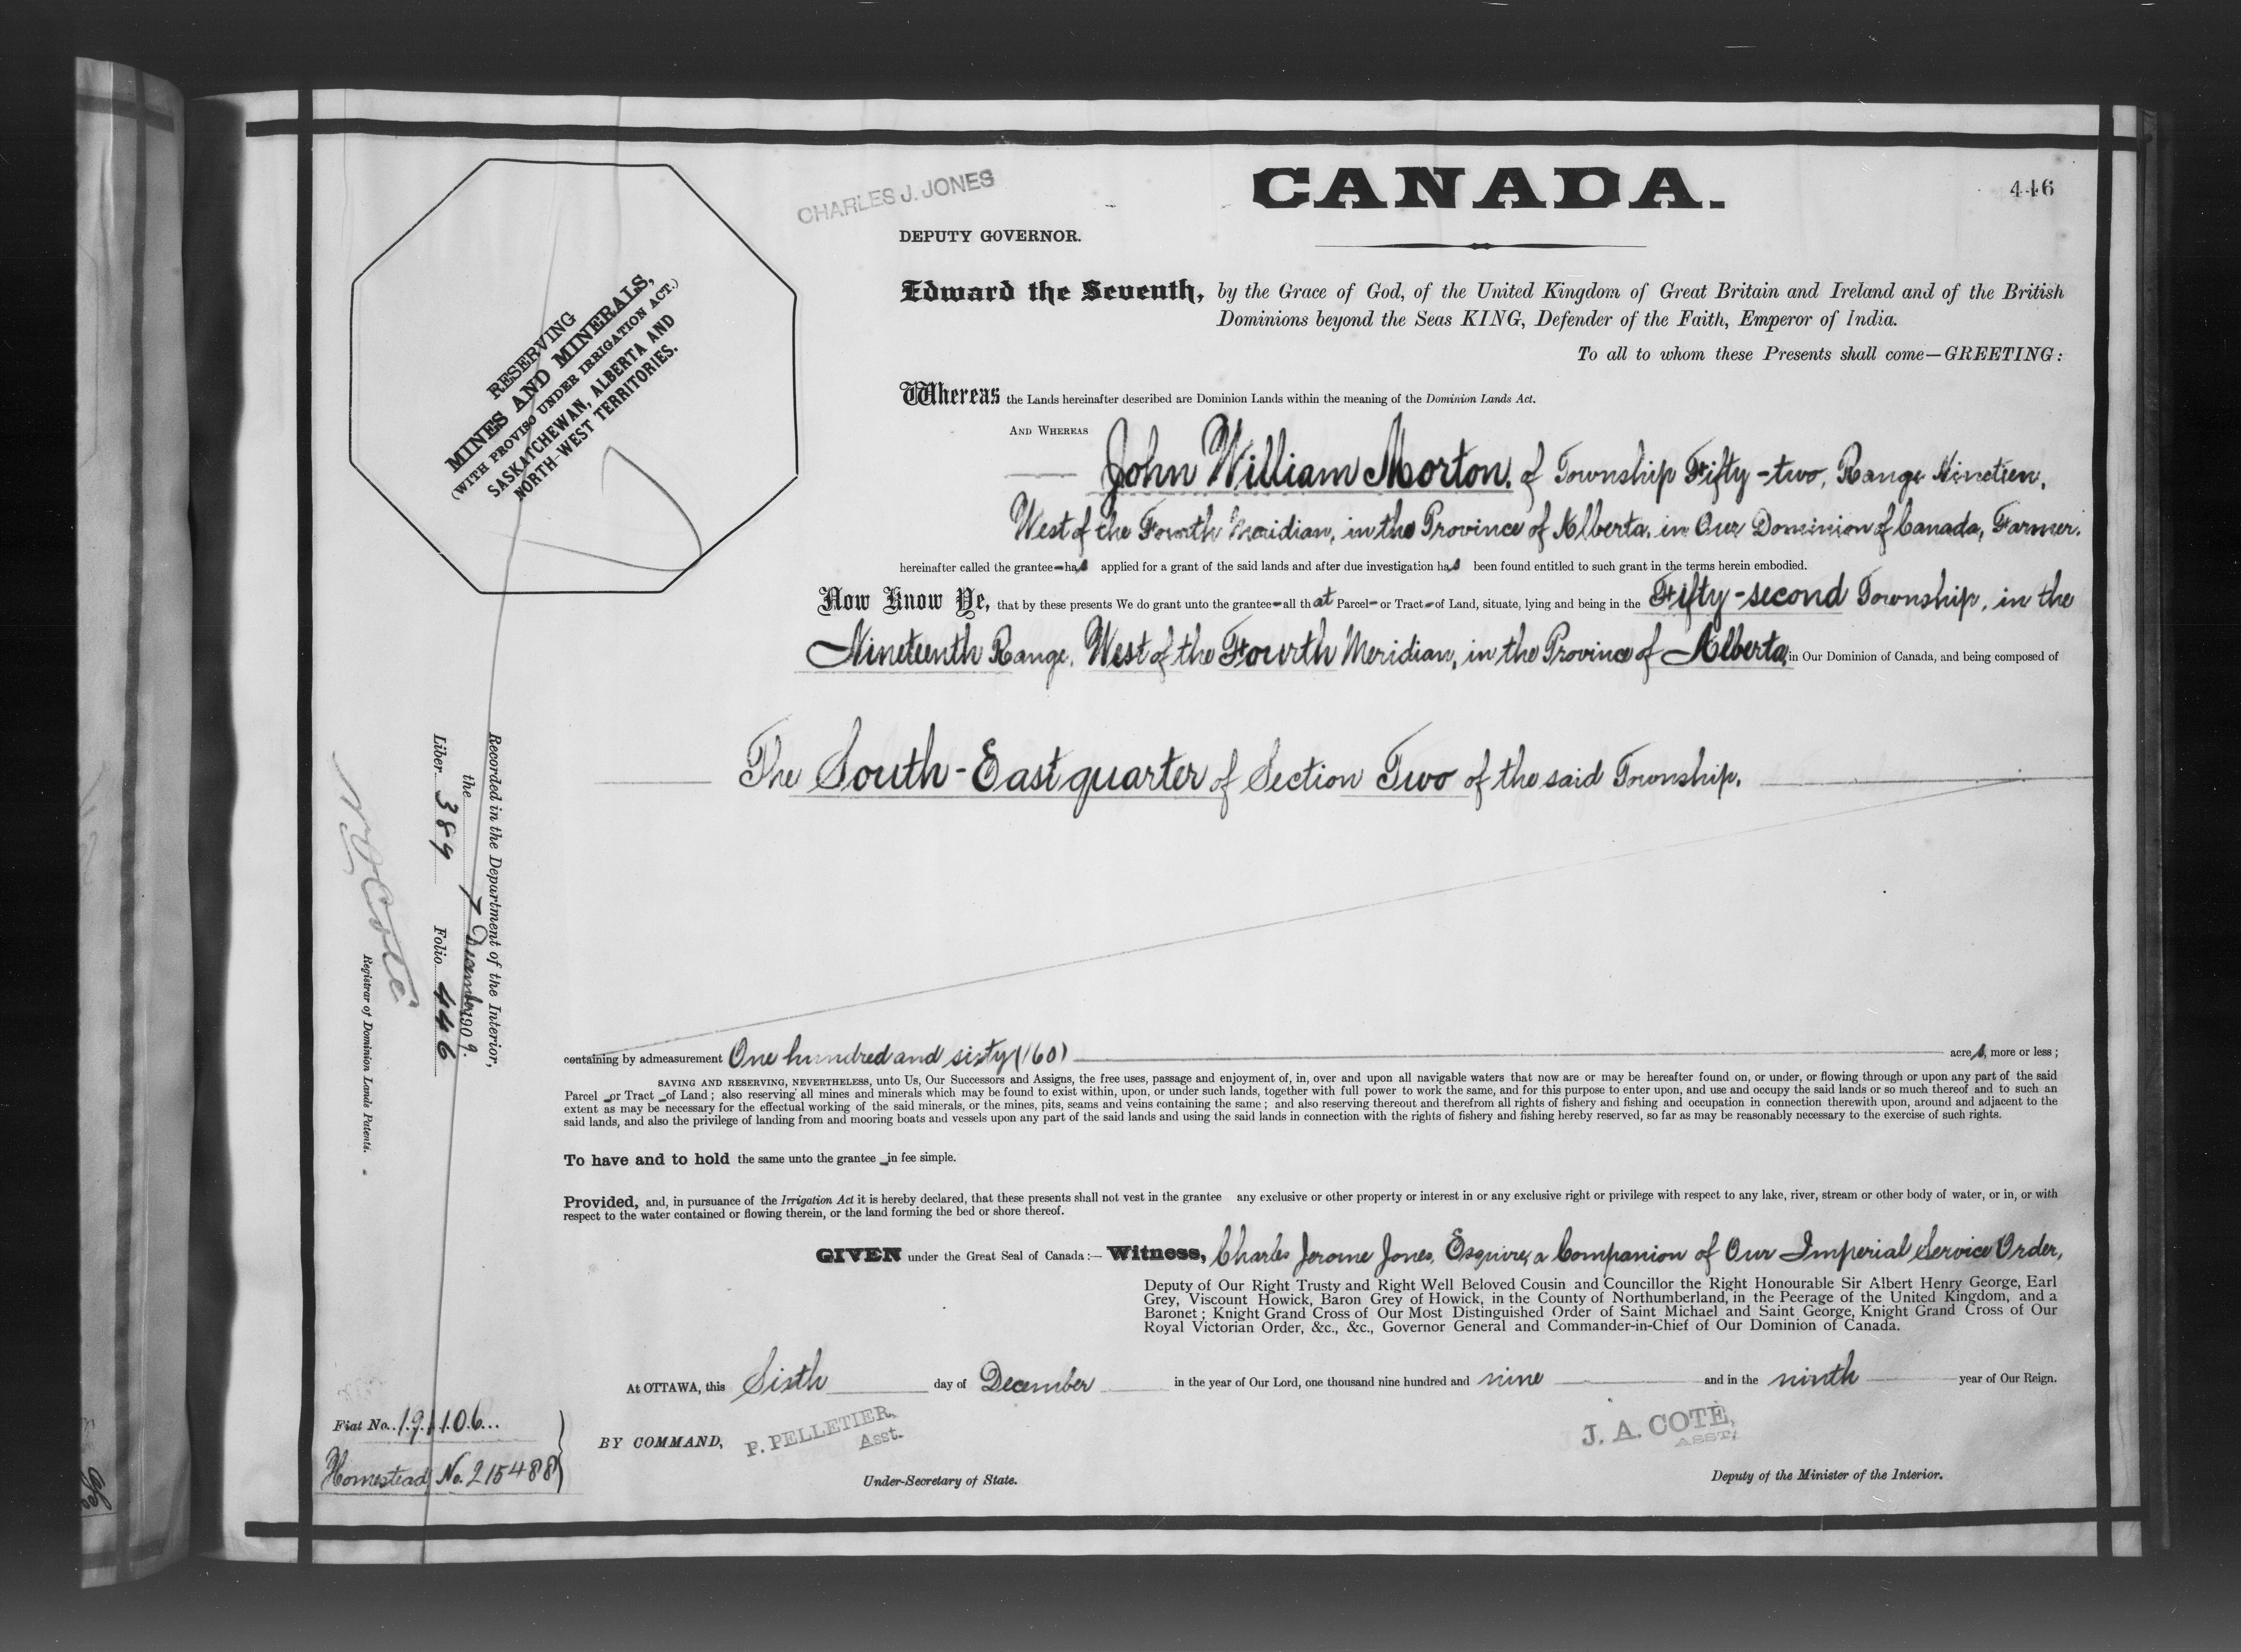 CANADA.
446
CHARLES J. JONES
DEPUTY GOVERNOR.
Edward the Seventh, by the Grace of God, of the United Kingdom of Great Britain and Ireland and of the British
Dominions beyond the Seas KING, Defender of the Faith, Emperor of India.
To all to whom these Presents shall come—GREETING:
RESERVING
MINES AND MINERALS,
(WITH PROVISO UNDER IRRIGATION ACT.)
SASKATCHEWAN, ALBERTA AND
NORTH-WEST TERRITORIES.
Whereas the Lands hereinafter described are Dominion Lands within the meaning of the Dominion Lands Act.
AND WHEREAS
John William Morton, of Township Fifty-two, Range Nineteen,
West of the Fourth Meridian, in the Province of Alberta, in Our Dominion of Canada, Farmer.
hereinafter called the grantee-has applied for a grant of the said lands and after due investigation has been found entitled to such grant in the terms herein embodied.
Now Know Ye, that by these presents We do grant unto the grantee-all that Parcel- or Tract-of Land, situate, lying and being in the Fifty-second Township, in the
Nineteenth Range, West of the Fourth Meridian, in the Province of Alberta, in Our Dominion of Canada, and being composed of
The South-East quarter of Section Two of the said Township.
containing by admeasurement One hundred and sixty (160) acres, more or less;
SAVING AND RESERVING, NEVERTHELESS, unto Us, Our Successors and Assigns, the free uses, passage and enjoyment of, in, over and upon all navigable waters that now are or may be hereafter found on, or under, or flowing through or upon any part of the said
Parcel -or Tract -of Land; also reserving all mines and minerals which may be found to exist within, upon, or under such lands, together with full power to work the same, and for this purpose to enter upon, and use and occupy the said lands or so much thereof and to such an
extent as may be necessary for the effectual working of the said minerals, or the mines, pits, seams and veins containing the same; and also reserving thereout and therefrom all rights of fishery and fishing and occupation in connection therewith upon, around and adjacent to the
said lands, and also the privilege of landing from and mooring boats and vessels upon any part of the said lands and using the said lands in connection with the rights of fishery and fishing hereby reserved, so far as may be reasonably necessary to the exercise of such rights.
To have and to hold the same unto the grantee -in fee simple.
Provided, and, in pursuance of the Irrigation Act it is hereby declared, that these presents shall not vest in the grantee any exclusive or other property or interest in or any exclusive right or privilege with respect to any lake, river, stream or other body of water, or in, or with
respect to the water contained or flowing therein, or the land forming the bed or shore thereof.
GIVEN under the Great Seal of Canada:— Witness, Charles Jerome Jones, Esquire, a Companion of Our Imperial Service Order,
Deputy of Our Right Trusty and Right Well Beloved Cousin and Councillor the Right Honourable Sir Albert Henry George, Earl
Grey, Viscount Howick, Baron Grey of Howick, in the County of Northumberland, in the Peerage of the United Kingdom, and a
Baronet; Knight Grand Cross of Our Most Distinguished Order of Saint Michael and Saint George, Knight Grand Cross of Our
Royal Victorian Order, &c., &c., Governor General and Commander-in-Chief of Our Dominion of Canada.
At OTTAWA, this Sixth day of December in the year of Our Lord, one thousand nine hundred and nine and in the ninth year of Our Reign.
BY COMMAND, P. PELLETIER,
Asst.
Under-Secretary of State.
J. A. COTÉ,
ASST.
Deputy of the Minister of the Interior.
Recorded in the Department of the Interior,
the 7 December 1909.
Liber 389 Folio 446
N O Coté
Registrar of Dominion Lands Patents.
Fiat No. 191106
Homestead No. 215488